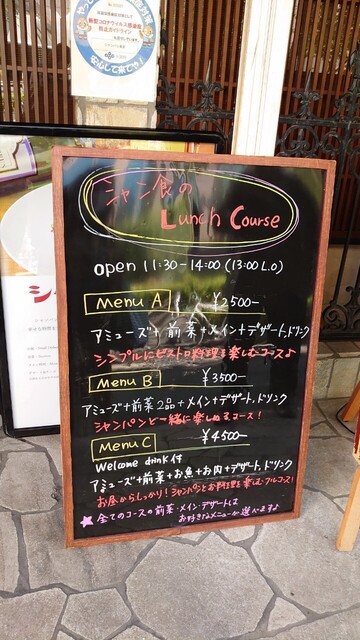 新型コロナウイルス感染症
防止ガイドライン
安心して来てや!
シャン食の
Lunch Course
open 11:30-14:00 (13:00 L.O)
Menu A ¥2500-
アミューズ+前菜+メイン+デザート,ドリンク
シンプルにビストロ料理を楽しむコース♪
Menu B ¥3500-
アミューズ+前菜2品+メイン+デザート,ドリンク
シャンパンと一緒に楽しめるコース!
Menu C ¥4500-
Welcome drink付
アミューズ+前菜+お魚+お肉+デザート,ドリンク
お昼からしっかり!シャンパンとお料理を楽しむフルコース!
★全てのコースの前菜・メイン・デザートは
お好きなメニューが選べます♪